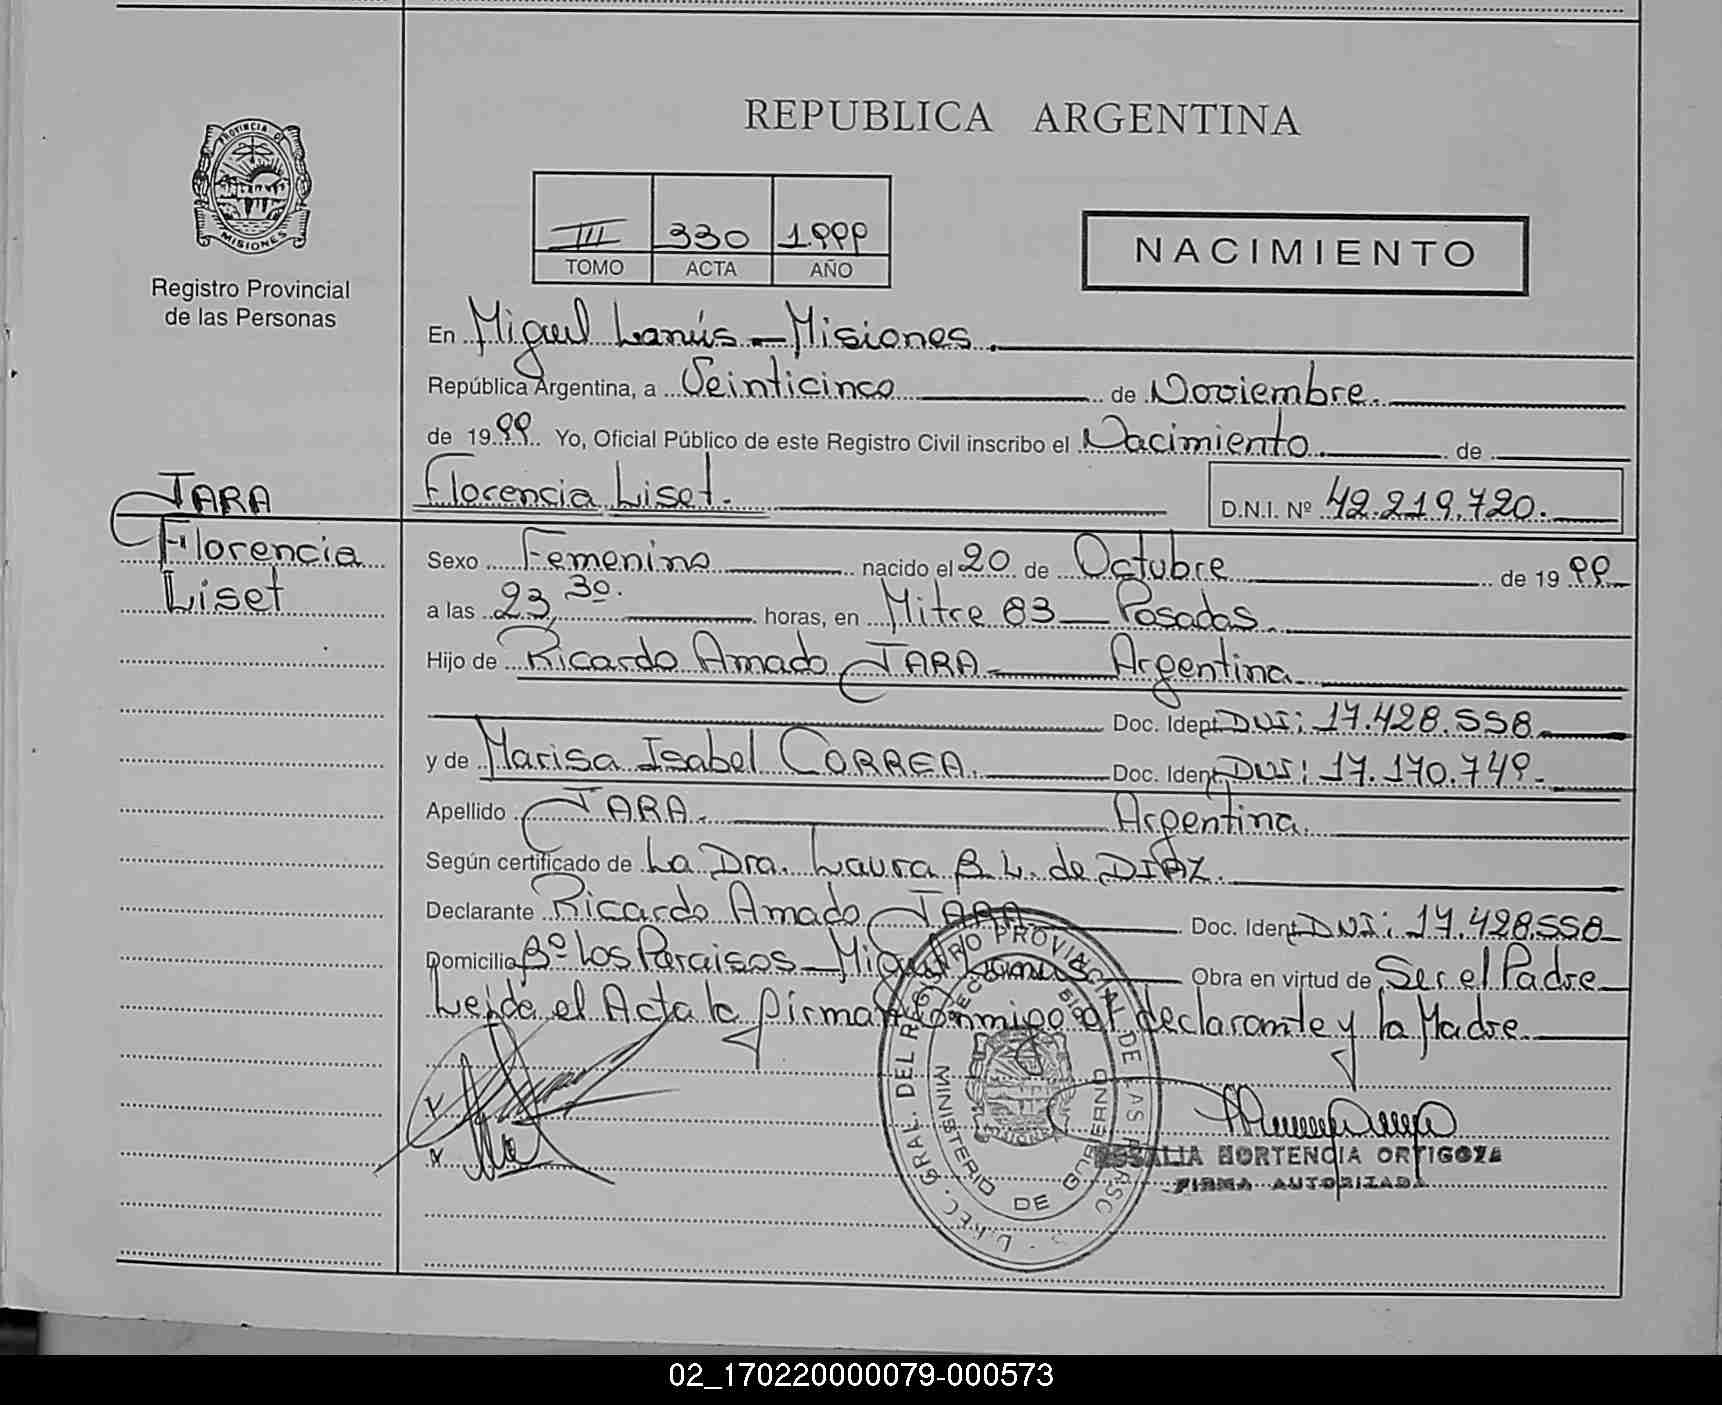 REPUBLICA ARGENTINA
PROVINCIA DE
MISIONES
Registro Provincial
de las Personas
III 330 1.999
TOMO ACTA AÑO
NACIMIENTO
En Miguel Lanús - Misiones.
República Argentina, a Veinticinco de Noviembre.
de 1999 Yo, Oficial Público de este Registro Civil inscribo el Nacimiento de
Florencia Liset. D.N.I. Nº 42.219.720.
JARA
Florencia
Liset
Sexo Femenino nacido el 20 de Octubre de 1999
a las 23,30. horas, en Mitre 83 - Posadas.
Hijo de Ricardo Amado JARA Argentina
Doc. Ident DNI: 17.428.558
y de Marisa Isabel CORREA. Doc. Ident DNI: 17.170.749.
Apellido JARA. Argentina.
Según certificado de La Dra. Laura B. L. de DIAZ.
Declarante Ricardo Amado JARA Doc. Ident DNI: 17.428.558
Domicilio Bº Los Paraisos - Miguel Lanus Obra en virtud de Ser el Padre
Leida el Acta la firman conmigo el declarante y la Madre
DEL REGISTRO PROVINCIAL DE LAS
MINISTERIO DE GOBIERNO
ROSALIA HORTENCIA ORTIGOZA
FIRMA AUTORIZADA
02_170220000079-000573